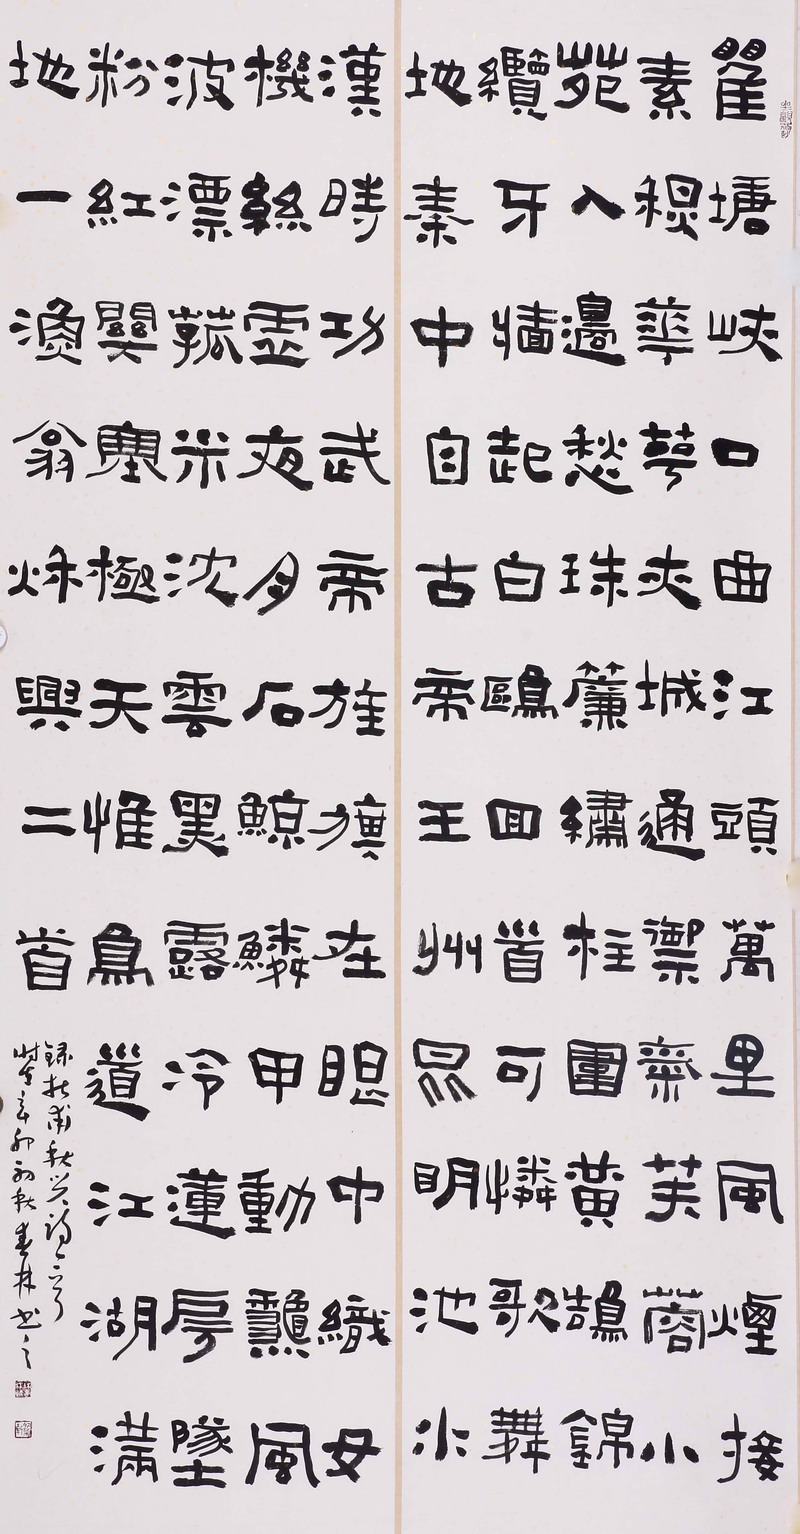 瞿塘峽口曲江頭萬里風煙接
素穐華萼夾城通禦氣芙蓉小
苑入邊愁珠簾繡柱圍黃鵠錦
纜牙檣起白鷗回首可憐歌舞
地秦中自古帝王州昆明池水
漢時功武帝旌旗在眼中織女
機絲虛夜月石鯨鱗甲動龝風
波漂菰米沈雲黑露冷蓮房墜
粉紅關塞極天惟鳥道江湖滿
地一漁翁秌興二首
錄杜甫秋興詩二首
時在辛卯初秋春林書之